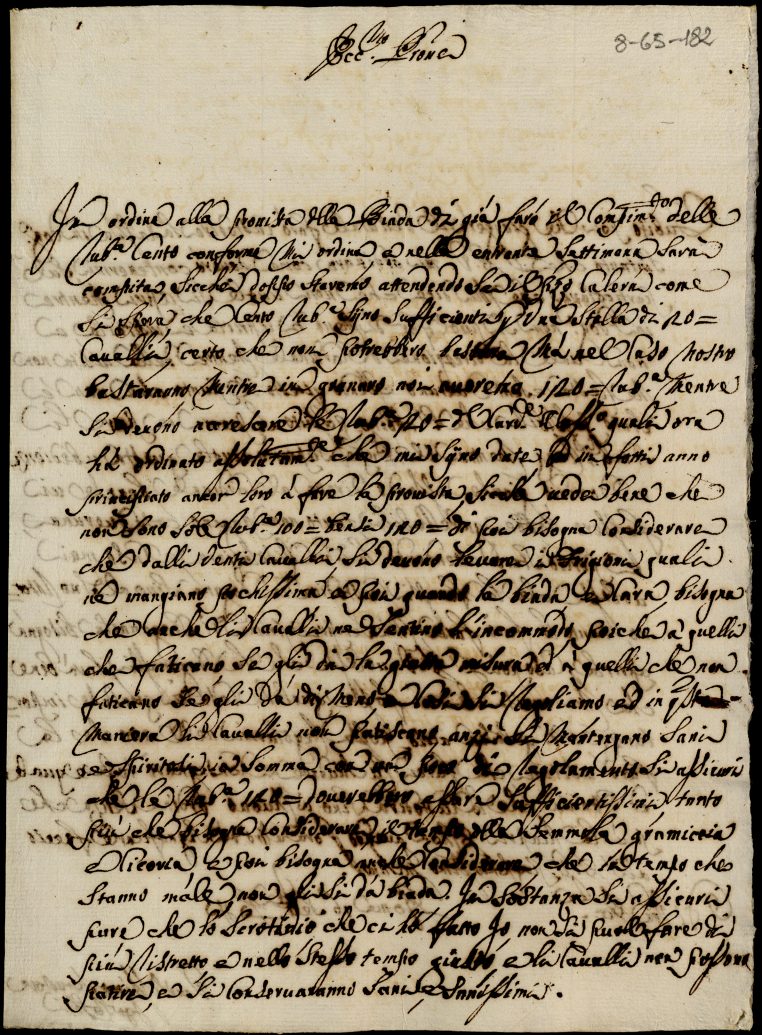 8-65-182
Ecc.mo Prone
In ordine alla provista della Biada di già farò il Compim.to delle
Rub.a Cento conforme mi ordina e nell' entrante Settimana Sarà
compita, Sicchè doppo Staremo attendendo Se il prezzo Calerà come
Si Spera che Cento Rub.a Sijno Sufficienti p Una Stalla di 20=
Cavalli, certo che non potrebbero bastare Mà nel Caso Nostro
bastarano Mentre in granaro noi averemo 120= Rub.a Mentre
Si devono accrescere le Rub.a 20= del quali ora
hà ordinato assolutam.e che mi Sijno date ed in fatti anno
principiato ancor loro à fare la provista, Sicchè vede bene che
non Sono Sole Rub.a 100= bensì 120= di poi bisogna Considerare
che dalli Venti Cavalli Si devono levare i quali
ne mangiano pochissima e poi quando la biada è Cara, bisogna
che anche li Cavalli ne Sentino l'incommodo, poiche à quelli
che faticano Se gli dà la misura ed à quelli che non
faticano Se gli dà di Meno e Così Si Regoliamo ed in
Maniera li Cavalli non patiscono anzi Si Mantengano Sani
e Spiritosi, in Somma con un poco di Regolamento Si assicuri
che le Rub.a 120= doverebbero essere Sufficientissime tanto
più che bisogna Considerare il tempo della Semmola gramiccia
e Cicoria, e poi bisogna anche Considerare che in tempo che
Stanno male non gli Si dà biada. In Sostanza Si assicuri
pure che lo Scrotinio che ci hò fatto Io non Si puole fare di
più Ristretto e nello Stesso tempo giusto e li Cavalli non possono
patire, e Si Conservaranno Sani e Sanissimi.